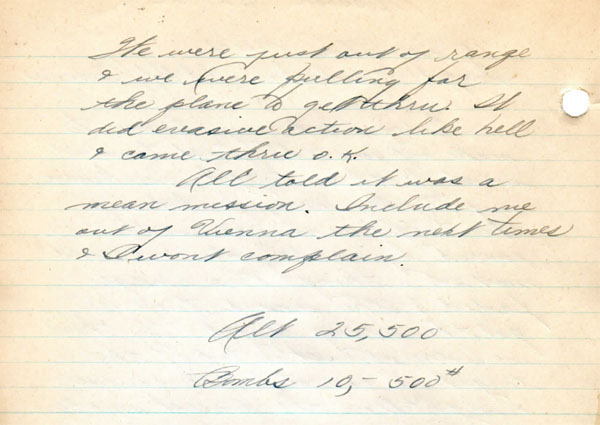 We were just out of range
& we were pulling for
the plane to get thru. It
did evasive action like hell
& came thru O.K.
All told it was a
mean mission. Include me
out of Vienna the next times
& I wont complain.
Alt 25,500
Bombs 10,- 500#